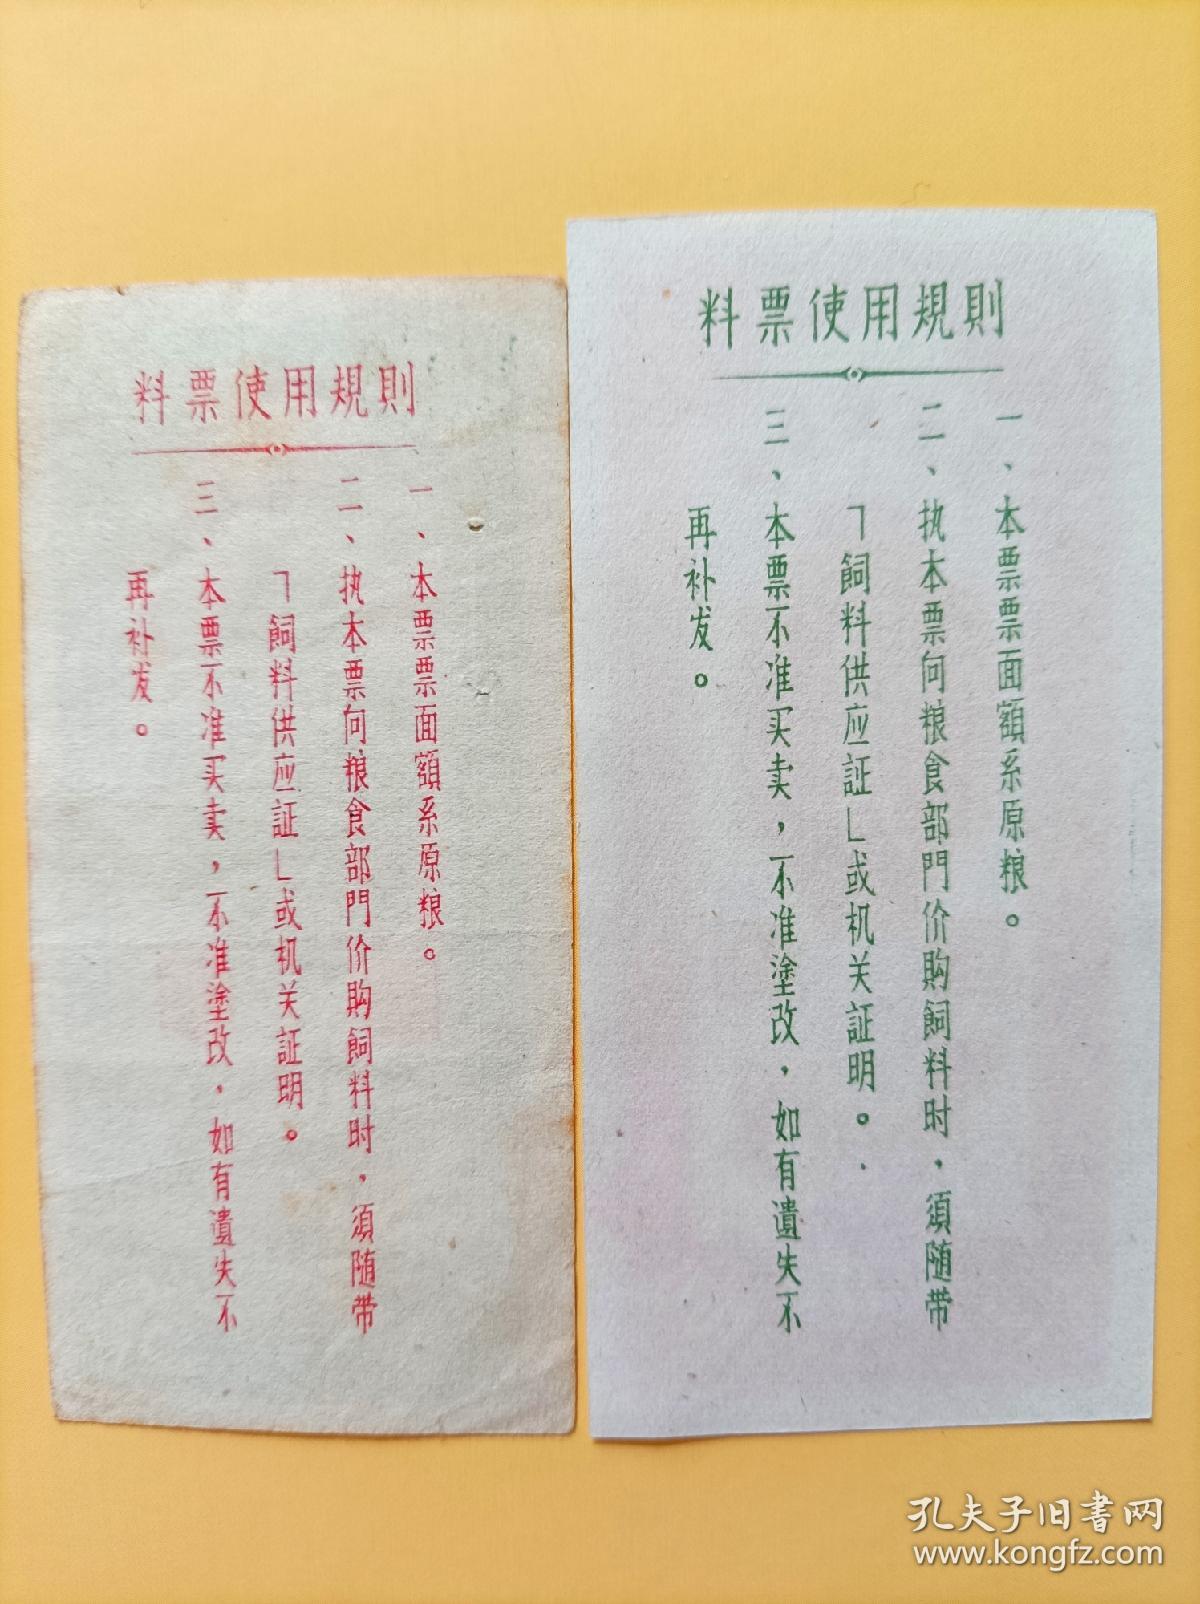 料票使用規則
一、本票票面額系原粮。
二、执本票向粮食部門价购飼料时，須随带
「飼料供应証」或机关証明。
三、本票不准买卖，不准塗改，如有遺失不
再补发。
料票使用規則
一、本票票面額系原粮。
二、执本票向粮食部門价购飼料时，須随带
「飼料供应証」或机关証明。
三、本票不准买卖，不准塗改，如有遺失不
再补发。
孔夫子旧书网
www.kongfz.com